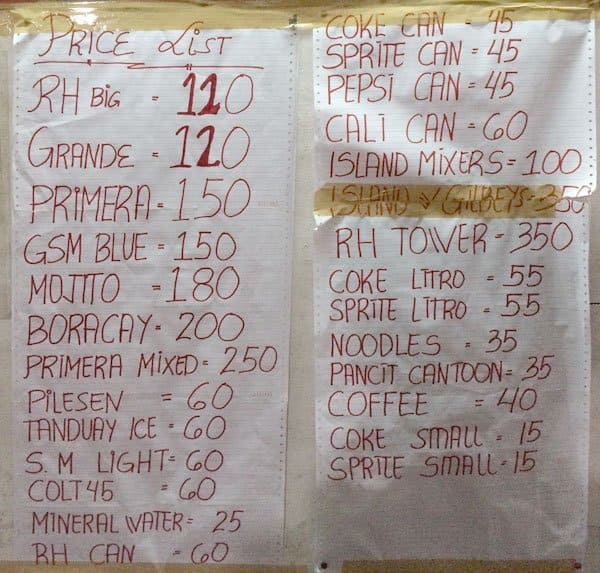 PRICE LIST
RH BIG = 110
GRANDE = 110
PRIMERA = 150
GSM BLUE = 150
MOJITO = 180
BORACAY = 200
PRIMERA MIXED = 250
PILESEN = 60
TANDUAY ICE = 60
S.M LIGHT = 60
COLT 45 = 60
MINERAL WATER = 25
RH CAN = 60
COKE CAN = 45
SPRITE CAN = 45
PEPSI CAN = 45
CALI CAN = 60
ISLAND MIXERS = 100
ISLAND W/ GILBEYS = 350
RH TOWER - 350
COKE LITRO = 55
SPRITE LITRO = 55
NOODLES = 35
PANCIT CANTOON = 35
COFFEE = 40
COKE SMALL = 15
SPRITE SMALL - 15